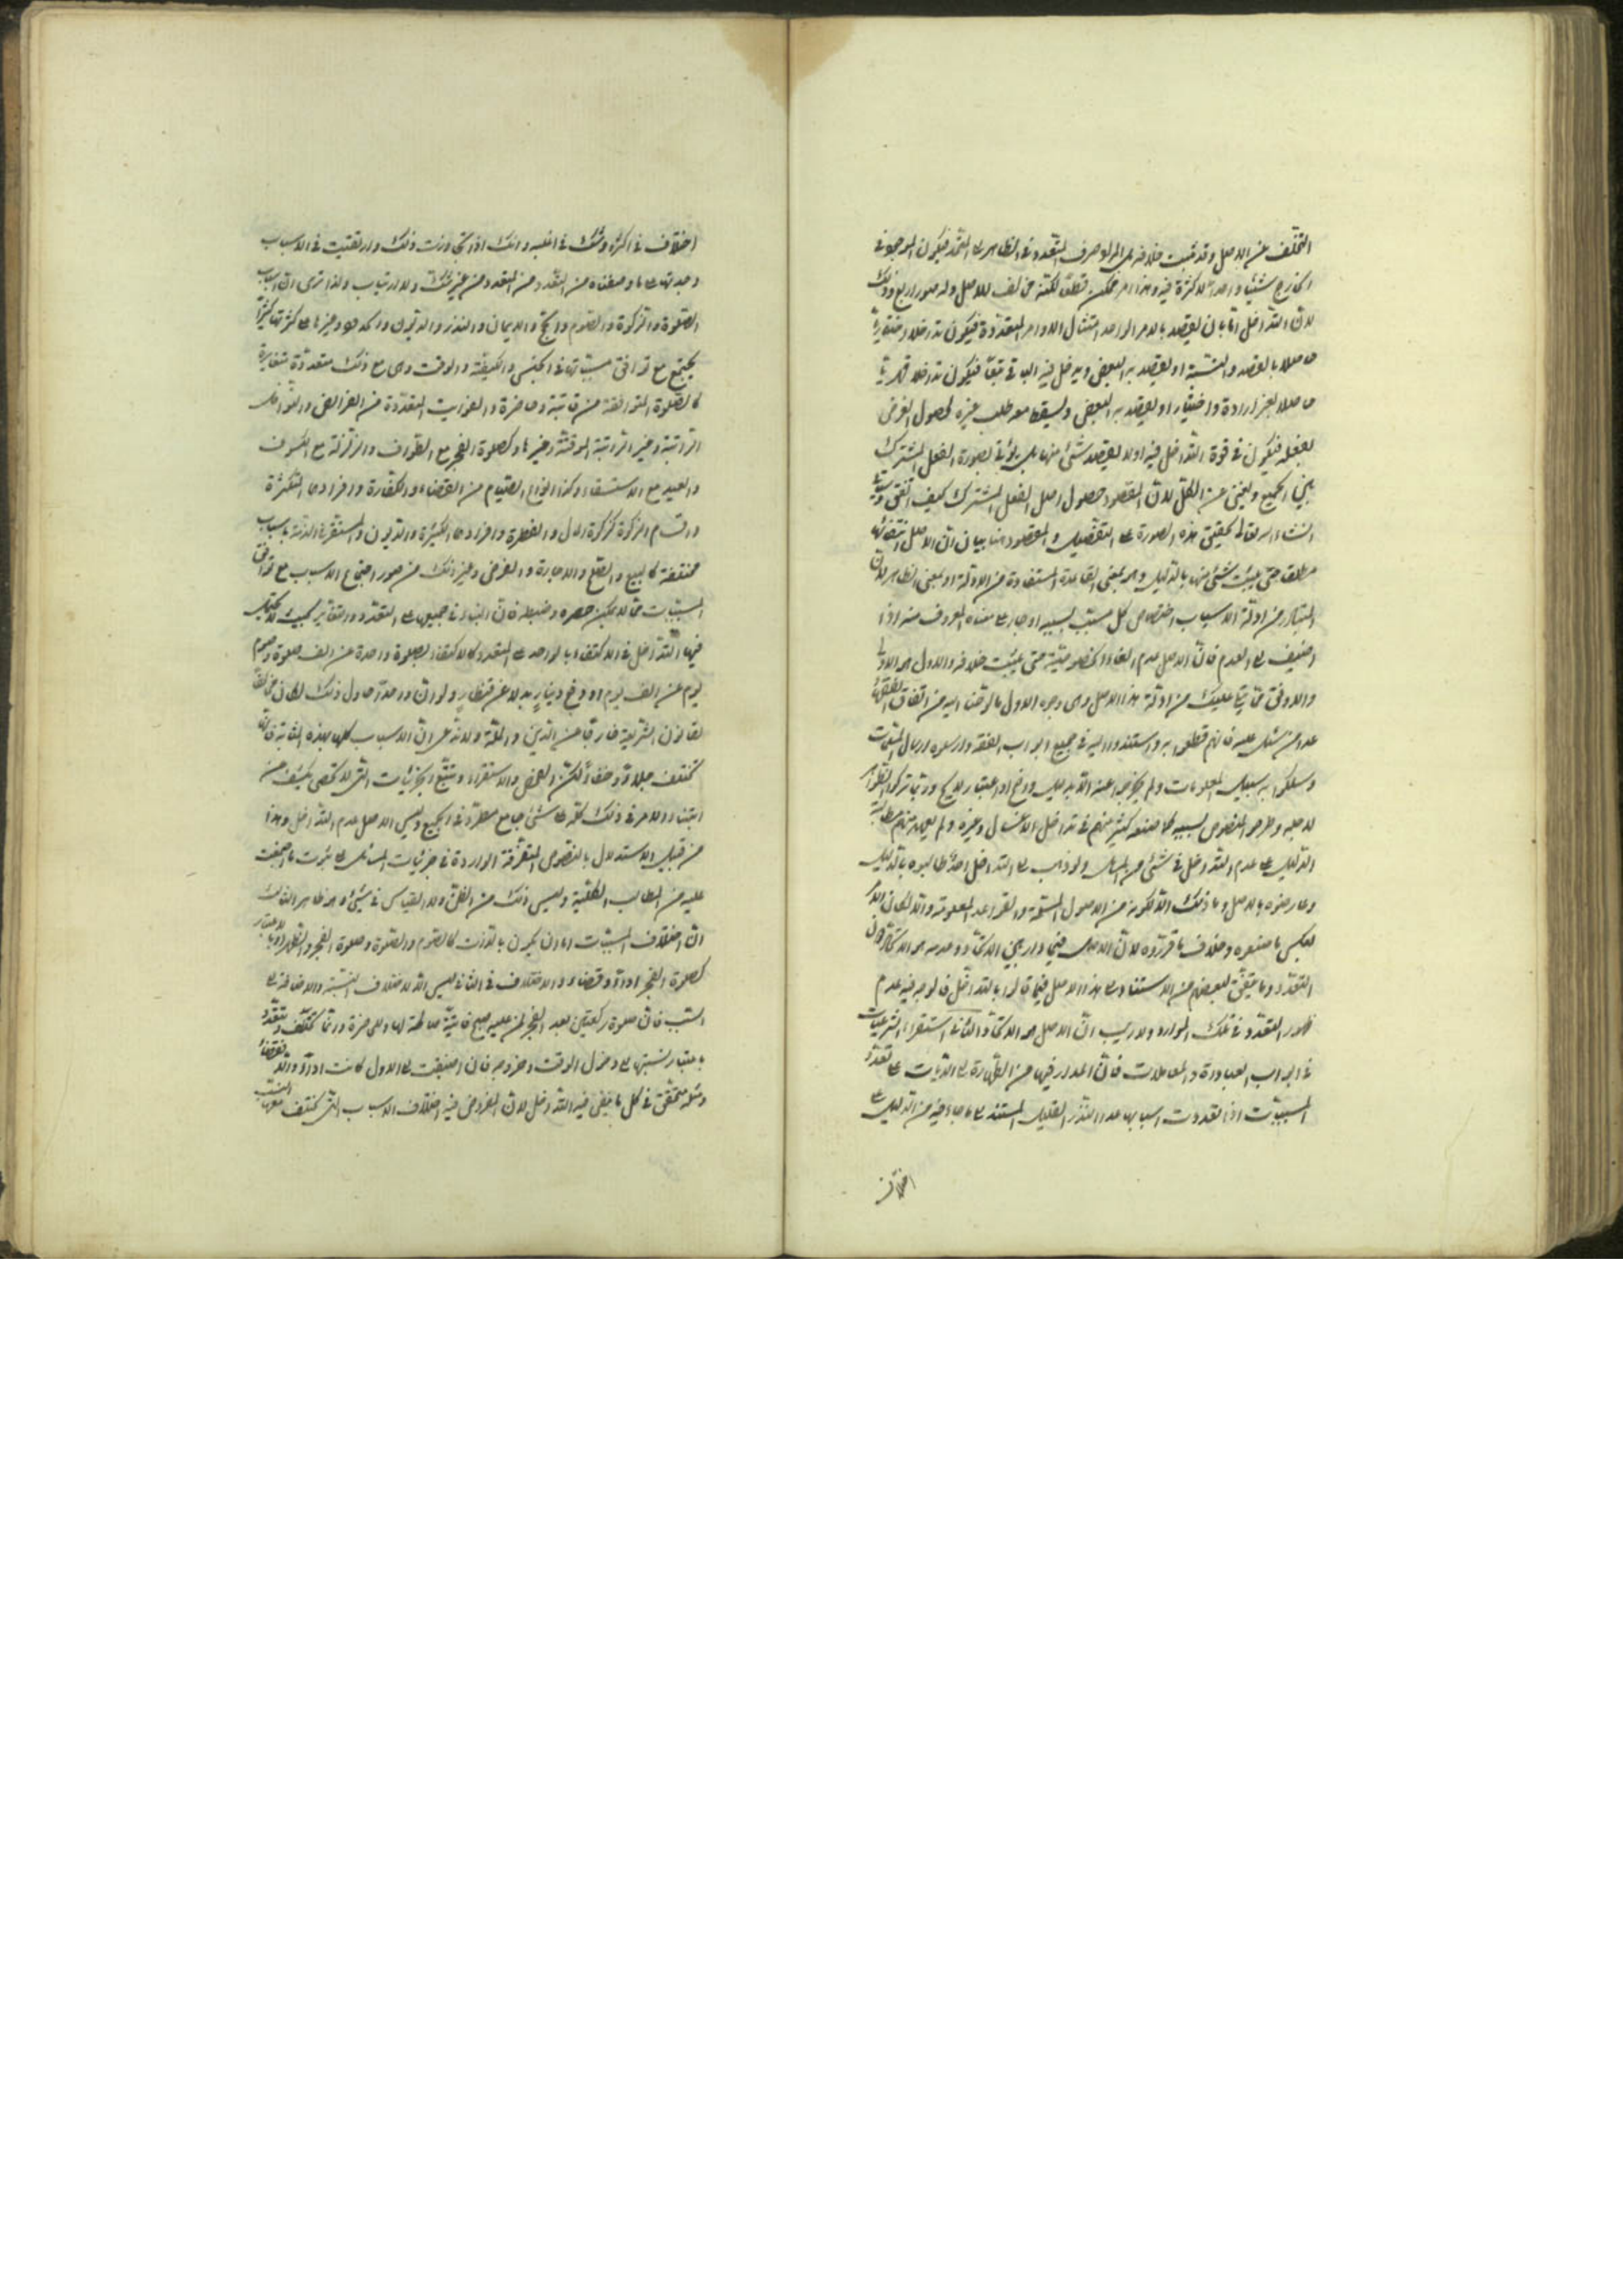 التخلف عن الاصل وقد ثبت خلافه في المراد وصرف التعدد في الظاهر الى المتحد فيكون الموجود في
الخارج شيئا واحدا لا كثرة فيه وهذا امر ممكن قطعا لكنه مخالف للاصل وله صور اربع وذلك
لان التداخل اما بان يقصد بالامر الواحد امتثال الاوامر المتعددة فيكون تداخلا اختياريا
حاصلا بالقصد والنية او يقصد به البعض ويدخل فيه الباقي تبعا فيكون تداخلا قهريا
حاصلا بغير ارادة واختيار او يقصد به البعض ويسقط معه طلب غيره لحصول الغرض
بفعله فيكون في قوة التداخل فيه او لا يقصد شئ منها بل يؤتى بصورة الفعل المشترك
بين الجميع ويغني عن الكل لان المقصود حصول اصل الفعل المشترك كيف اتفق وسيأتي
انشاء الله تعالى تحقيق هذه الصورة على التفصيل والمقصود هنا بيان ان الاصل انتفائها
مطلقا حتى يثبت شئ منها بالدليل وهو بمعنى القاعدة المستفادة من الادلة او بمعنى الظاهر لان
المتبادر من ادلة الاسباب اختصاص كل مسبب بسببه او جار على معناه المعروف منه اذا
اضيف الى العدم فان الاصل عدم الغاء الخصوصية حتى يثبت خلافه والاول هو الاولى
والاوفق بما يتلى عليك من ادلة هذا الاصل وهي وجوه الاول ما لوحنا اليه من اتفاق الفقهاء
عدا من شذ عليه فانهم قطعوا به واستندوا اليه في جميع ابواب الفقه وارسلوه ارسال المسلمات
وسلكوا به سبيل المعلومات ولم يخرجوا عنه الا بدليل واضح او اعتبار لايح وربما تركوا الظواهر
لاجله وطرحوا النصوص بسببه كما صنعه كثير منهم في تداخل الاغسال وغيره ولم يعهد منهم مطالبة
الدليل على عدم التداخل في شئ من المسائل ولو ذهب الى التداخل احد طالبوه بالدليل
وعارضوه بالاصل وما ذلك الا لكونه من الاصول المسلمة والقواعد المعلومة والا لكان الامر
بالعكس مما صنعوه وخلاف ما قرروه لان الاصل فيما دار بين الاتحاد وعدمه هو الاتحاد دون
التعدد وما يتفق لبعضهم من الاستناد الى هذا الاصل فيما قالوا بالتداخل فالوجه فيه عدم
ظهور التعدد في تلك الموارد ولا ريب ان الاصل هو الاتحاد الثاني استقراء الشرعيات
في ابواب العبادة والمعاملات فان المدار فيها من الطهارة الى الديات على تعدد
المسببات اذا تعددت اسبابها عدا النذر القليل المستند الى ما جاء فيه من الدليل على
اختلاف
اختلاف في اكثره وشك في اغلبه وانك اذا تجاوزت ذلك وارتقيت في الاسباب
وجدتها على ما وصفناه من التعدد من غير شك ولا ارتياب ولذا ترى ان اسباب
الصلوة والزكوة والصوم والحج والايمان والنذر والديون والحدود وغيرها على كثرتها كثيرا
يجتمع مع توافق مسبباتها في الجنس والكيفية والوقت وهي مع ذلك متعددة متغايرة
كالصلوة المتوافقة من فائتة وحاضرة والفوايت المتعددة من الفرائض والنوافل
الراتبة وغير الراتبة الموقتة وغيرها وكصلوة الفجر مع الطواف والزلزلة مع الكسوف
والعيد مع الاستسقاء وكذا انواع الصيام من القضاء والكفارة وافرادها المتكثرة
واقسام الزكوة كزكوة المال والفطرة وافرادها الكثيرة والديون المستقرة في الذمة باسباب
مختلفة كالبيع والصلح والاجارة والقرض وغير ذلك من صور اجتماع الاسباب مع توافق
المسببات مما لا يمكن حصره وضبطه فان البناء في جميعها على التعدد والتغاير بحيث لا يحتمل
فيها التداخل في الاكتفاء بالواحد عن المتعدد كالاكتفاء بصلوة واحدة عن الف صلوة وصوم
يوم عن الف يوم او دفع دينار بدلا عن قنطار ولو ان واحدا حاول ذلك لكان مخالفا
لقانون الشريعة خارقا عن الدين والملة ولا ندعي ان الاسباب كلها بهذه المثابة فانها
تختلف جلاء وخفاء لكن الفحص والاستقراء وتتبع الجزئيات التي لا تحصى يكشف عن
ابتناء الامر في ذلك كله على شئ جامع مطرد في الجميع وليس الا اصل عدم التداخل وهذا
من قبيل الاستدلال بالنصوص المتفرقة الواردة في جزئيات المسائل على ثبوت ما اجتمعت
عليه من المطالب الكلية وليس ذلك من الظن ولا القياس في شئ وهو ظاهر الثالث
ان اختلاف المسببات اما ان يكون بالذات كالصوم والصلوة وصلوة الفجر والظهر او بالاعتبار
كصلوة الفجر اداء وقضاء والاختلاف في الثاني ليس الا لاختلاف النسبة والاضافة الى
السبب فان صلوة ركعتين بعد الفجر لمن عليه صبح فائتة صالحة لها وللحاضرة وربما تختلف وتتعدد
باعتبار نسبتها الى دخول الوقت وخروجه فان اضيفت الى الاول كانت اداء والا قضاء
ومثله متحقق في كل ما ينفى فيه التداخل لان المفروض فيه اختلاف الاسباب التي تختلف معها النسب